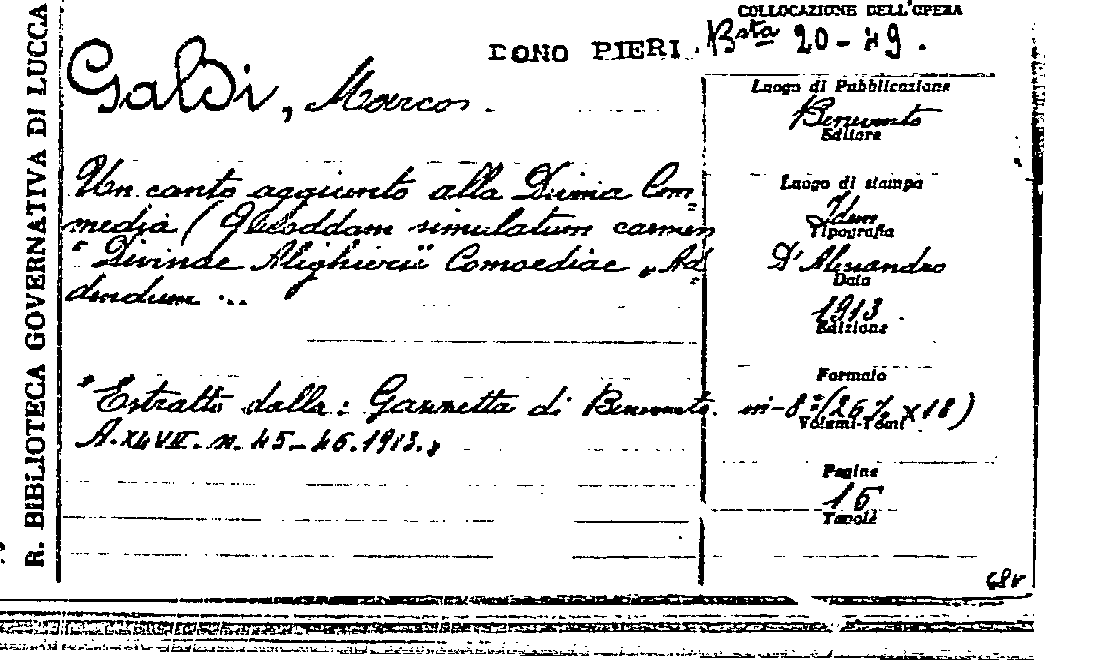 R. BIBLIOTECA GOVERNATIVA DI LUCCA
COLLOCAZIONE DELL'OPERA
DONO PIERI. Bsta 20-49.
Galdi, Marco.
Un canto aggiunto alla Divina Com=
media (Quoddam simulatum carmen
"Divinae Alighierii Comoediae" Ad=
dendum ...
"Estratto dalla: Gazzetta di Benevento.
A. XLVII. n. 45-46. 1913."
Luogo di Pubblicazione
Benevento
Editore
Luogo di stampa
Idem
Tipografia
D'Alessandro
Data
1913.
Edizione
Formato
in-8° (26½ x 18)
Volumi-Tomi
Pagine
16
Tavole